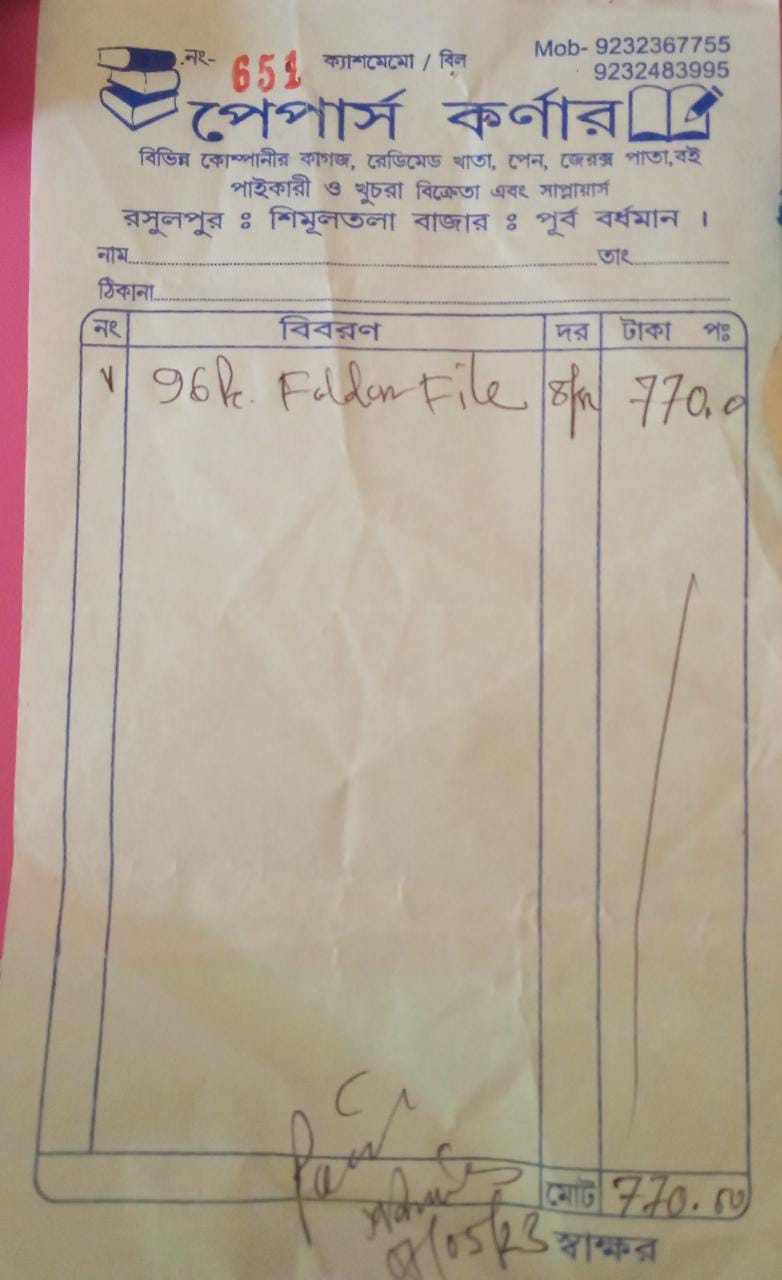 নং- 651 ক্যাশমেমো / বিল Mob- 9232367755
9232483995
পেপার্স কর্ণার
বিভিন্ন কোম্পানীর কাগজ, রেডিমেড খাতা, পেন, জেরক্স পাতা,বই
পাইকারী ও খুচরা বিক্রেতা এবং সাপ্লায়ার্স
রসুলপুর ঃ শিমূলতলা বাজার ঃ পূর্ব বর্ধমান ।
নাম তাং
ঠিকানা
নং বিবরণ দর টাকা পঃ
96 Pc. Folder File 770.0
মোট 770.00
স্বাক্ষর